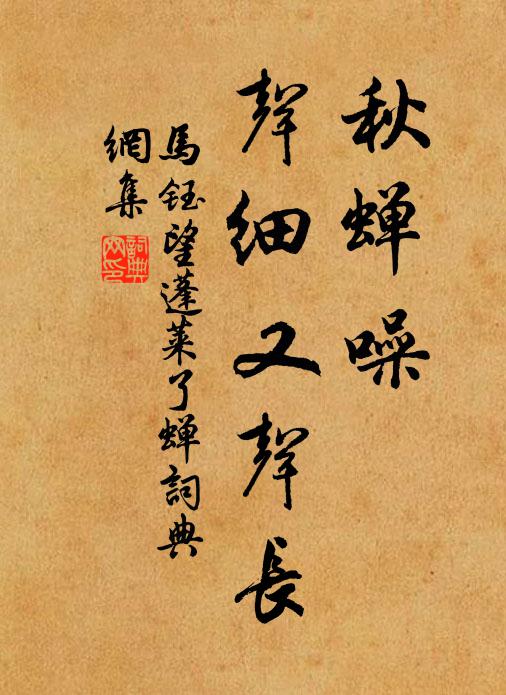 秋蝉噪
聲细又聲長
馬鈺望蓬萊了蝉詞典
網集
詞典
网印